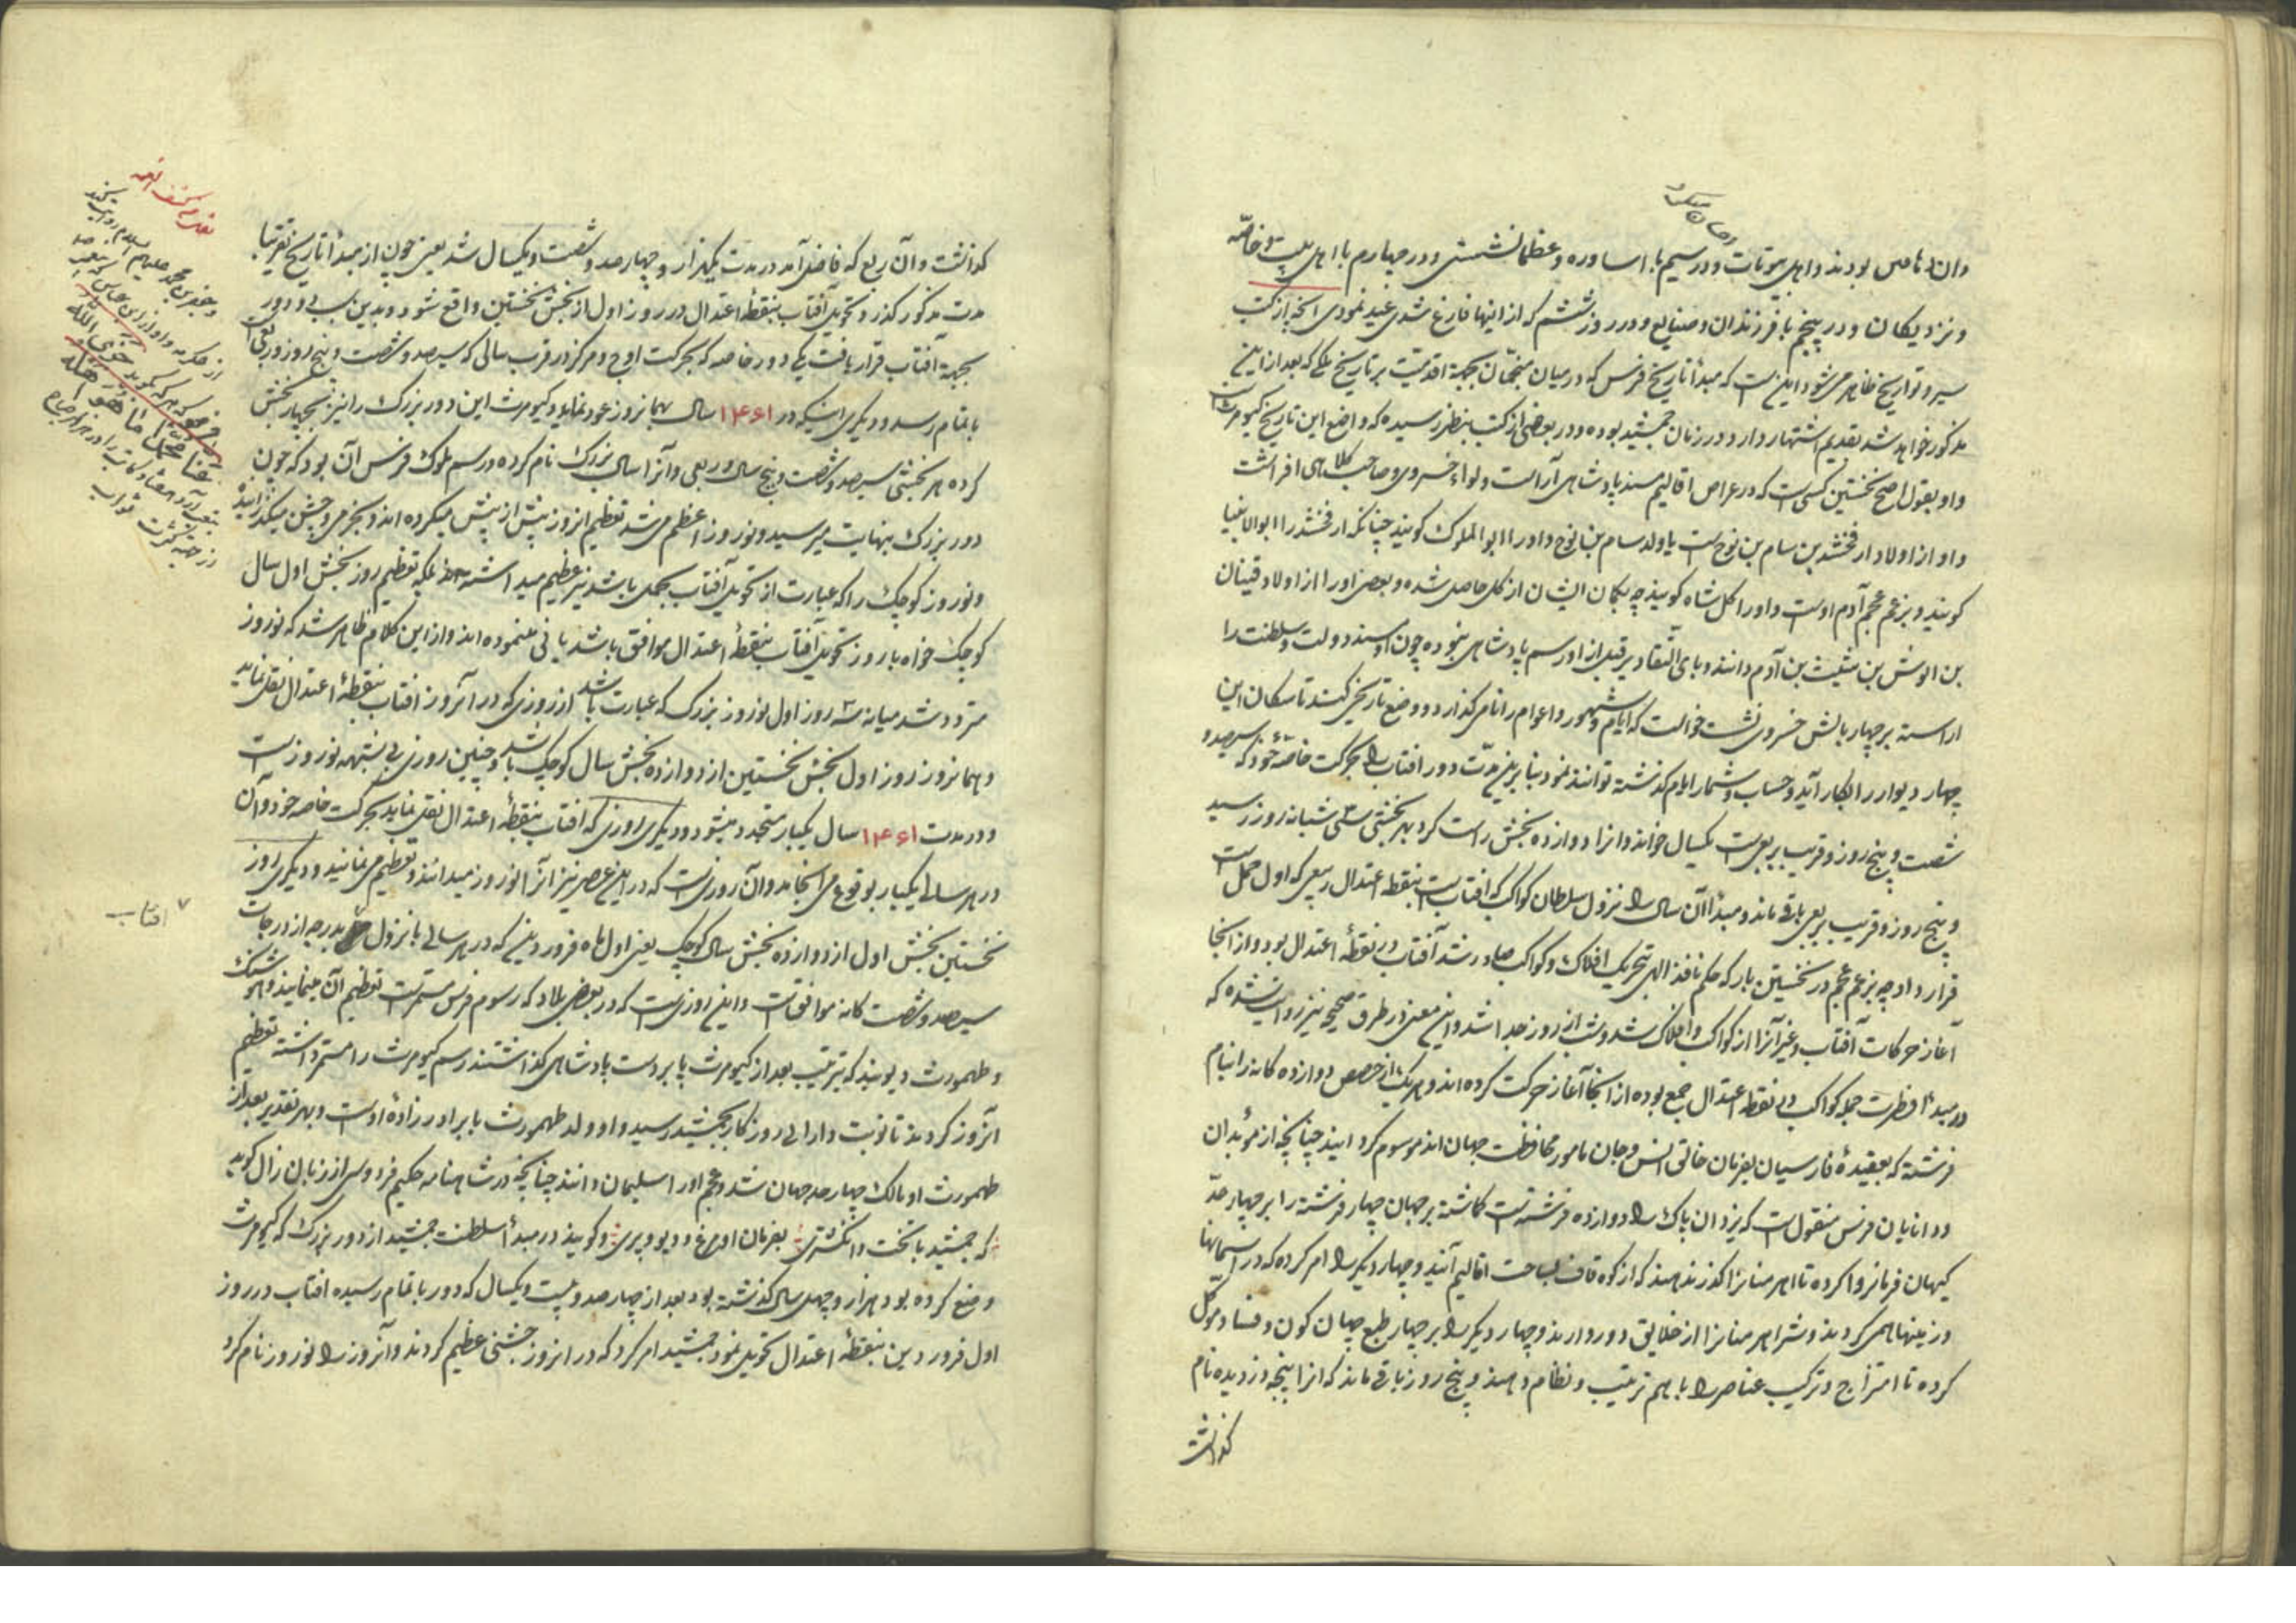 وان اناس بودند و اهل بیوتات و در سیم با اساوره و عظما نشستی و در چهارم با اهل بیت و خاصّه
و نزدیکان و در پنجم با فرزندان و صنایع و در روز ششم که از اینها فارغ شدی عید نمودی آنچه از کتب
سیر و تواریخ ظاهر می‌شود اینست که مبدأ تاریخ فرس که در میان منجمان بجهة اقدمیّت بر تاریخ ملکی که بعد از این
مذکور خواهد شد بقدیم اشتهار دارد در زمان جمشید بوده و در بعضی از کتب بنظر رسیده که واضع این تاریخ کیومرثست
و او بقول اصح نخستین کسی است که در عراص اقالیم مسند پادشاهی آراست و لواء خسروی و صاحب کلاهی افراشت
و او از اولاد ارفخشد بن سام بن نوح است یا ولد سام بن نوح و او را ابو الملوک کویند چنانکه ارفخشد را ابو الانبیا
کویند و بزعم عجم آدم اوست و او را کل شاه کویند چه بکمان ایشان از کل حاصل شده و بعضی او را از اولاد قینان
بن انوش بن شیث بن آدم دانند و بای التقادیر قبل از او رسم پادشاهی نبوده چون او مسند دولت و سلطنت را
اراسته بر چهار بالش خسروی نشست خواست که ایام و شهور و اعوام را نامی کذارد و وضع تاریخی کند تا سکان این
چهار دیوار را بکار آید و حساب و شمار ایام کذشته توانند نمود بنا برین مدّت دور افتاب را بحرکت خاصّۀ خود که سیصد و
شصت و پنج روز و قریب بربعی است یکسال خواند و انرا دوازده بخش راست کرد هر بخشی سی شبانه روز رسید
و پنج روز و قریب بربعی باقی ماند و مبدأ آن سال را نزول سلطان کواکب که افتاب است بنقطه اعتدال ربیعی که اول حمل است
قرار داد چه بزعم عجم در نخستین بار که حکم نافذ الهی بتحریک افلاک و کواکب صادر شد آفتاب در نقطۀ اعتدال بود و از انجا
آغاز حرکات آفتاب و غیر آنرا از کواکب و افلاک شد و شب از روز جدا شد و این معنی در طرق صحیحه نیز روایت شده که
در مبدأ فطرت جمله کواکب در نقطه اعتدال جمع بوده از انجا آغاز حرکت کرده‌اند و هر یک از حصص دوازده کانه را بنام
فرشته که بعقیدۀ فارسیان بفرمان خالق انس و جان مامور محافظت جهان اند موسوم کردانید چنانچه از موبدان
و دانایان فرس منقول است که یزدان پاک را دوازده فرشته است کماشته بر جهان چهار فرشته را بر چهار حدّ
کیهان فرمانروا کرده تا اهرمنانرا کذر ندهند که از کوه قاف بساحت اقالیم آیند و چهار دیکر را امر کرده که در اسمانها
و زمینها همی کردند و شر اهرمنانرا از خلایق دور دارند و چهار دیکر را بر چهار طبع جهان کون و فساد موکل
کرده تا امتزاج و ترکیب عناصر را باهم ترتیب و نظام دهند و پنج روز باقی ماند که انرا پنجه دزدیده نام
کذاشت
کذاشت و آن ربع که فاضل آمد در مدت یکهزار و چهارصد و شصت و یکسال شد یعنی چون از مبدأ تاریخ تقریبا
مدت مذکور کذرد تحویل آفتاب بنقطه اعتدال در روز اول از بخش نخستین واقع شود و بدین سبب دو دور
بجهة آفتاب قرار یافت یکی دور خاصه که بحرکت اوج و مرکز در قرب سالی که سیصد و شصت و پنج روز و ربعی است
باتمام رسد و دیکری اینکه در ۱۴۶۱ سال بهمان روز عود نماید و کیومرث این دور بزرک را نیز بچهار بخش
کرده هر بخشی سیصد و شصت و پنج سال و ربعی و آنرا سال بزرک نام کرده و رسم ملوک فرس آن بود که چون
دور بزرک بنهایت میرسید و نوروز اعظم می‌شد تعظیم انروز بیش از پیش میکرده اند و بخرمی و جشن میکذرانیده
و نوروز کوچک را که عبارت از تحویل آفتاب بحمل باشد نیز عظیم میداشته اند بلکه تعظیم روز بخش اول سال
کوچک خواه با روز تحویل آفتاب بنقطۀ اعتدال موافق باشد یا نی مینموده اند و از این کلام ظاهر شد که نوروز
مردد شد میانه سه روز اول نوروز بزرک که عبارت باشد از روزی که در آنروز افتاب بنقطۀ اعتدال نقل نماید
و همانروز روز اول بخش نخستین از دوازده بخش سال کوچک باشد و چنین روزی بی شبهه نوروز است
و در مدت ۱۴۶۱ سال یکبار متجدد میشود و دیکری روزی که افتاب بنقطۀ اعتدال نقل نماید بحرکت خاصه خود و آن
در هر سالی یکبار بوقوع می‌انجامد و آن روزیست که در این عصر نیز آنرا نوروز میدانند و تعظیم می‌نمایند و دیکری روز
نخستین بخش اول از دوازده بخش سال کوچک یعنی اول ماه فروردین که در هر سالی با نزول بدرجه از درجات
سیصد و شصت کانه موافق است و این روزیست که در بعضی بلاد که رسوم فرس مستمر است تعظیم آن مینمایند و هوشنک
و طهمورث دیوبند که بترتیب بعد از کیومرث پا بر دست پادشاهی کذاشتند رسم کیومرث را مستمر داشته تعظیم
آنروز کردند تا نوبت دارایی روزکار بجمشید رسید و او ولد طهمورث یا برادرزادۀ اوست و بهر تقدیر بعد از
طهمورث او مالک چهار حد جهان شد و عجم او را سلیمان دانند چنانچه در شاهنامه حکیم فردوسی از زبان زال کوید
که جمشید با تخت و انکشتری بفرمان او مرغ و دیو و پری و کویند در مبدأ سلطنت جمشید از دور بزرک که کیومرث
وضع کرده بود هزار و چهل سال کذشته بود بعد از چهارصد و بیست و یکسال که دور باتمام رسیده افتاب در روز
اول فروردین بنقطۀ اعتدال تحویل نمود جمشید امر کرد که در انروز جشنی عظیم کردند و آنروز را نوروز نام کرد
افتاب